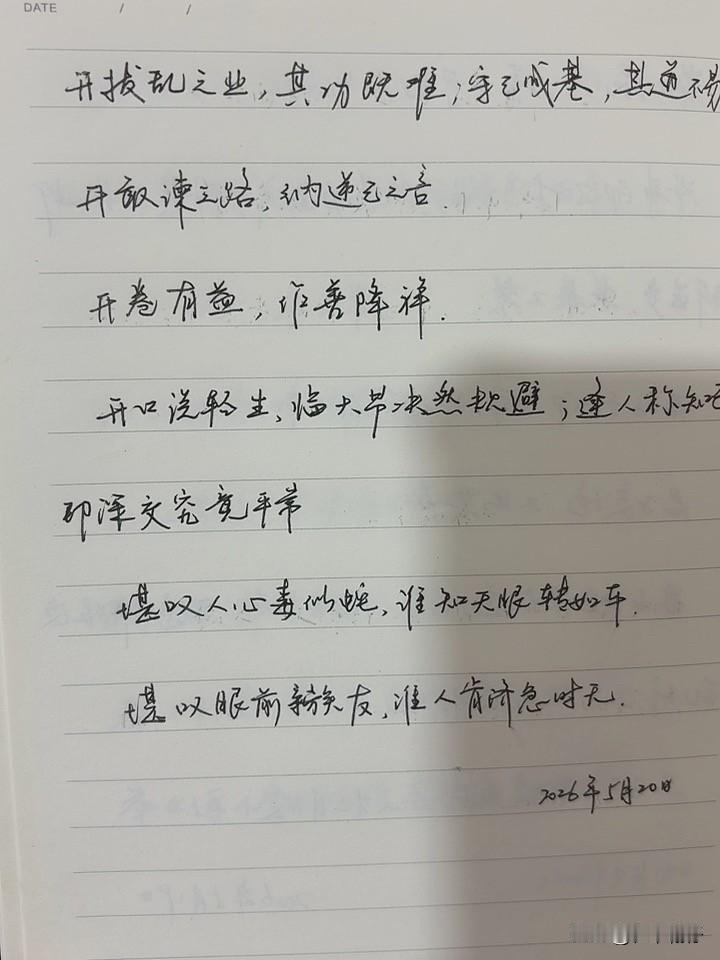 DATE / /
开拔乱之业，其功既难；守已成基，其道不易
开敢谏之路，纳逆己之言.
开卷有益，作善降祥.
开口说轻生，临大节决然规避；逢人称知己
即深交究竟平常
堪叹人心毒似蛇，谁知天眼转如车.
堪叹眼前亲族友，谁人肯济急时无.
2026年5月20日